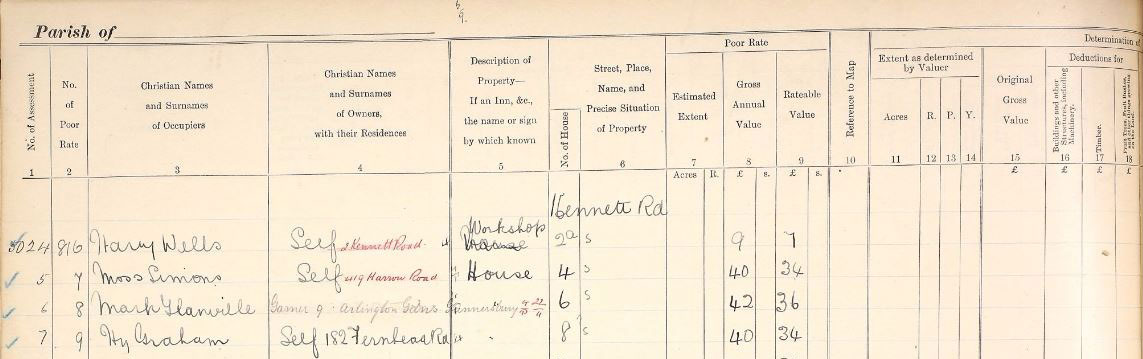 6/9.
Parish of
No. of Assessment
No. of Poor Rate
Christian Names and Surnames of Occupiers
Christian Names and Surnames of Owners, with their Residences
Description of Property— If an Inn, &c., the name or sign by which known
No. of House
Street, Place, Name, and Precise Situation of Property
Poor Rate
Estimated Extent
Gross Annual Value
Rateable Value
Reference to Map
Extent as determined by Valuer
Acres R. P. Y.
Determination of
Original Gross Value
Deductions for
Buildings and other Structures, including Machinery.
Timber.
Fruit Trees, Fruit Bushes,
1 2 3 4 5 6 7 8 9 10 11 12 13 14 15 16 17 18
Acres R. £ s. £ s. £ £ £ £
Kennett Rd
Workshop
3024 816 Harry Wells Self 2 Kennett Road House 2a s 9 7
5 7 Moss Simons Self 419 Harrow Road House 4 s 40 34
6 8 Mark Glanville Garner 9 Arlington Gdns Gunnersbury " 6 s 42 36
7 9 Hy Graham Self 182 Fernhead Rd " 8 s 40 34